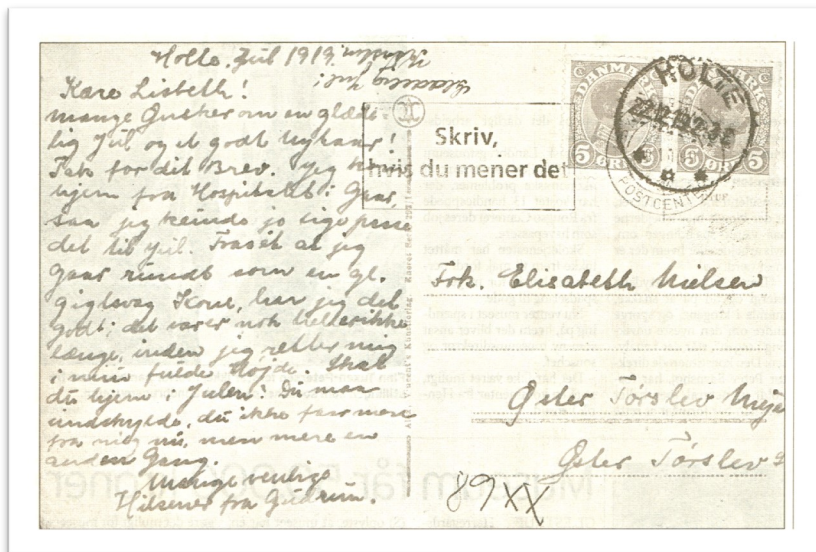 Holte. Jul 1919.
Glædelig Jul!
Kære Lisbeth!
mange Ønsker om en glæde-
lig Jul og et godt Nytaar!
Tak for dit Brev. Jeg kom
hjem fra Hospitalet i Gaar,
saa jeg kunde jo lige passe
det til Jul. Fraset at jeg
gaar rundt som en gl.
gigtsvag Kone, har jeg det
godt; det varer nok heller ikke
længe, inden jeg retter mig
i min fulde Højde. Skal
du hjem i Julen? Du maa
undskylde, du ikke faar mere
fra mig nu, men mere en
anden Gang.
Mange venlige
Hilsener fra Gudrun.
Skriv,
hvis du mener det
DANMARK
5 ØRE 5
DANMARK
5 ØRE 5
HOLTE
POSTCENTER
Frk. Elisabeth Nielsen
Øster Tørslev Meje
Øster Tørslev
89XX